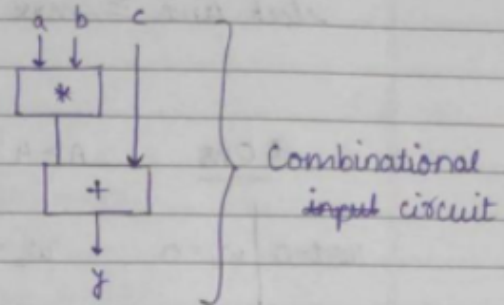 a b c
*
+
Combinational
input circuit
y